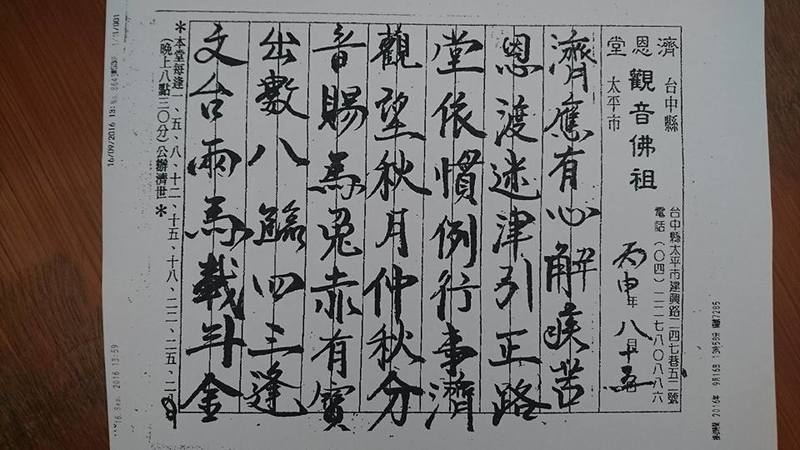 台中縣
太平市
濟恩堂
觀音佛祖
台中縣太平市建興路二四七巷五二號
電話（〇四）二二七八〇八八六
丙申年八月十五日
濟應有心解疾苦
恩渡迷津引正路
堂依慣例行事濟
觀望秋月仲秋分
音賜馬兔赤有寶
出數八臨四三逢
文台兩馬載斗金
＊本堂每逢一、五、八、十二、十五、十八、二二、二五、二
（晚上八點三〇分）公辦濟世＊
16/09/2016 13:
16 Sep. 2016 13:59
2016年 9月16日 13時59分